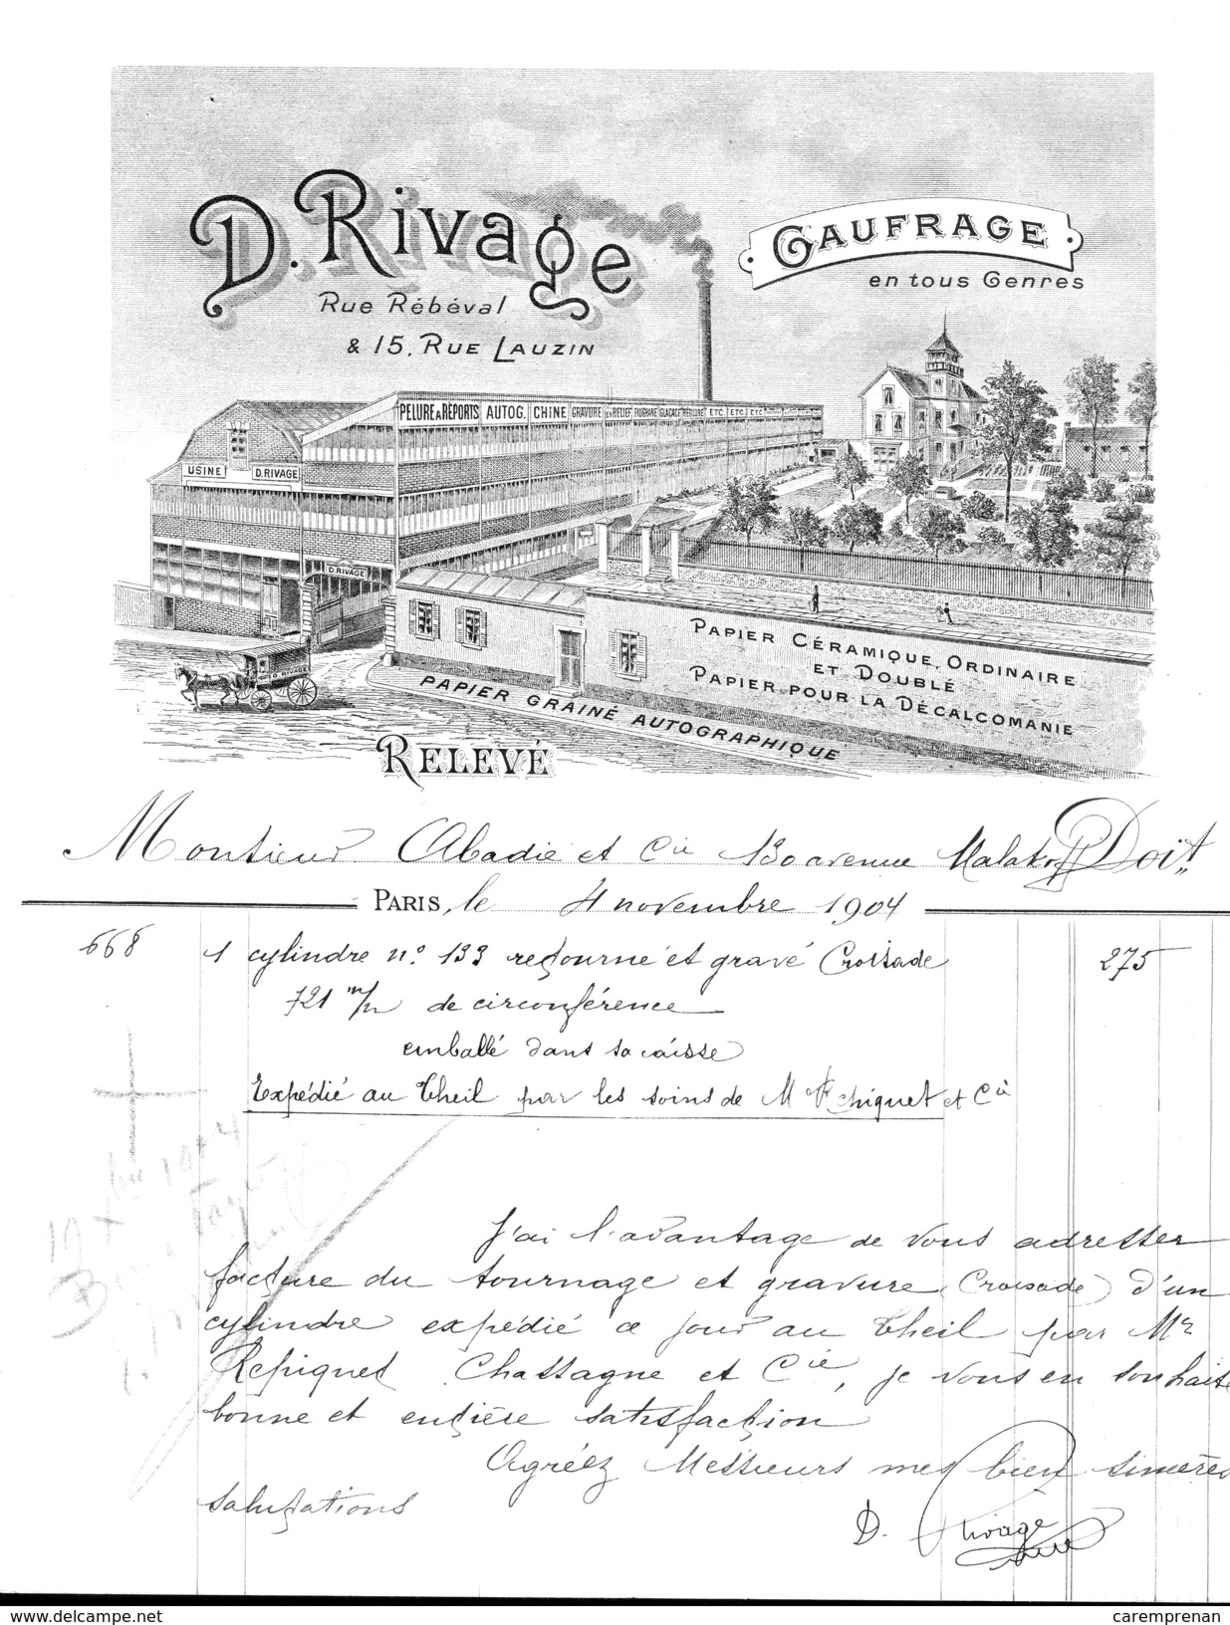 D. Rivage
Rue Rébéval
& 15, Rue Lauzin
GAUFRAGE
en tous Genres
PELURE A REPORTS AUTOG. CHINE GRAVURE RELIEF GLACAGE ETC. ETC. ETC.
USINE D. RIVAGE
D. RIVAGE
D. RIVAGE
PAPIER CÉRAMIQUE, ORDINAIRE
ET DOUBLÉ
PAPIER POUR LA DÉCALCOMANIE
PAPIER GRAINÉ AUTOGRAPHIQUE
RELEVÉ
Monsieur Abadie et Cie 130 avenue Malakoff Doit
PARIS, le 4 novembre 1904
668 1 cylindre n° 133 retourné et gravé Croisade 275
721 m/m de circonférence
emballé dans sa caisse
Expédié au Theil par les soins de M et Cie
J'ai l'avantage de vous adresser
facture du tournage et gravure (Croisade) d'un
cylindre expédié ce jour au Theil par Mr
Repiquet Chassagne et Cie, je vous en souhaite
bonne et entière satisfaction
Agréez Messieurs mes bien sincères
salutations
D. Rivage
delcampe.net
caremprenan